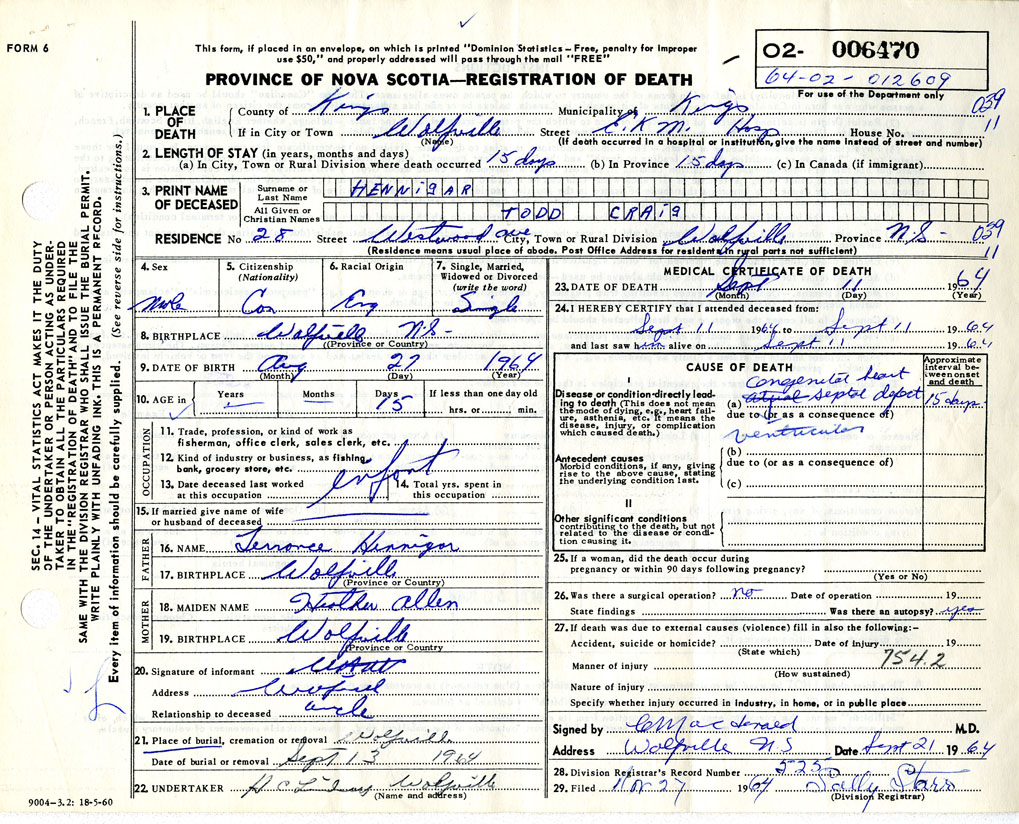 FORM 6
This form, if placed in an envelope, on which is printed "Dominion Statistics – Free, penalty for improper
use $50," and properly addressed will pass through the mail "FREE"
PROVINCE OF NOVA SCOTIA—REGISTRATION OF DEATH
02- 006470
64-02-012609
For use of the Department only
059
11
SEC. 14 – VITAL STATISTICS ACT MAKES IT THE DUTY
OF THE UNDERTAKER OR PERSON ACTING AS UNDER-
TAKER TO OBTAIN ALL THE PARTICULARS REQUIRED
IN THE "REGISTRATION OF DEATH" AND TO FILE THE
SAME WITH THE DIVISION REGISTRAR WHO SHALL ISSUE THE BURIAL PERMIT.
WRITE PLAINLY WITH UNFADING INK. THIS IS A PERMANENT RECORD.
Every item of information should be carefully supplied. (See reverse side for instructions.)
1. PLACE OF DEATH
County of Kings Municipality of Kings
If in City or Town Wolfville Street E.K.M. Hosp House No.
(Name) (If death occurred in a hospital or institution, give the name instead of street and number)
2. LENGTH OF STAY (in years, months and days)
(a) In City, Town or Rural Division where death occurred 15 days (b) In Province 15 days (c) In Canada (if immigrant)
3. PRINT NAME OF DECEASED
Surname or Last Name HENNIGAR
All Given or Christian Names TODD CRAIG
RESIDENCE No 28 Street Westwood ave City, Town or Rural Division Wolfville Province N.S- 059
11
(Residence means usual place of abode. Post Office Address for residents in rural parts not sufficient)
4. Sex Male
5. Citizenship (Nationality) Can
6. Racial Origin Eng
7. Single, Married, Widowed or Divorced (write the word) Single
8. BIRTHPLACE Wolfville N.S-
(Province or Country)
9. DATE OF BIRTH Aug 27 1964
(Month) (Day) (Year)
10. AGE in Years Months Days 15 If less than one day old
hrs. or min.
OCCUPATION
11. Trade, profession, or kind of work as
fisherman, office clerk, sales clerk, etc.
12. Kind of industry or business, as fishing,
bank, grocery store, etc. infant
13. Date deceased last worked
at this occupation
14. Total yrs. spent in
this occupation
15. If married give name of wife
or husband of deceased
FATHER
16. NAME Terrance Hennigar
17. BIRTHPLACE Wolfville
(Province or Country)
MOTHER
18. MAIDEN NAME Heather Allen
19. BIRTHPLACE Wolfville
(Province or Country
20. Signature of informant
Address Wolfville
Relationship to deceased uncle
21. Place of burial, cremation or removal Wolfville
Date of burial or removal Sept 13 1964
22. UNDERTAKER Wolfville
(Name and address)
9004-3.2: 18-5-60
MEDICAL CERTIFICATE OF DEATH
23. DATE OF DEATH Sept 11 1964
(Month) (Day) (Year)
24. I HEREBY CERTIFY that I attended deceased from:
Sept 11 1964 to Sept 11 1964
and last saw him alive on Sept 11 1964
CAUSE OF DEATH
Approximate interval between onset and death
I
Disease or condition directly leading to death (This does not mean the mode of dying, e.g., heart failure, asthenia, etc. It means the disease, injury, or complication which caused death.)
Congenital heart
(a) atrial septal defect 15 days-
due to (or as a consequence of)
ventricular
(b)
due to (or as a consequence of)
(c)
Antecedent causes
Morbid conditions, if any, giving rise to the above cause, stating the underlying condition last.
II
Other significant conditions
contributing to the death, but not related to the disease or condition causing it.
25. If a woman, did the death occur during
pregnancy or within 90 days following pregnancy?
(Yes or No)
26. Was there a surgical operation? no Date of operation 19
State findings Was there an autopsy? yes
27. If death was due to external causes (violence) fill in also the following:–
Accident, suicide or homicide? Date of injury 19
(State which) 754.2
Manner of injury
(How sustained)
Nature of injury
Specify whether injury occurred in industry, in home, or in public place
Signed by M.D.
Address Wolfville N.S Date Sept 21 1964
28. Division Registrar's Record Number 525
29. Filed Nov 27 1964 Sally Starr
(Division Registrar)